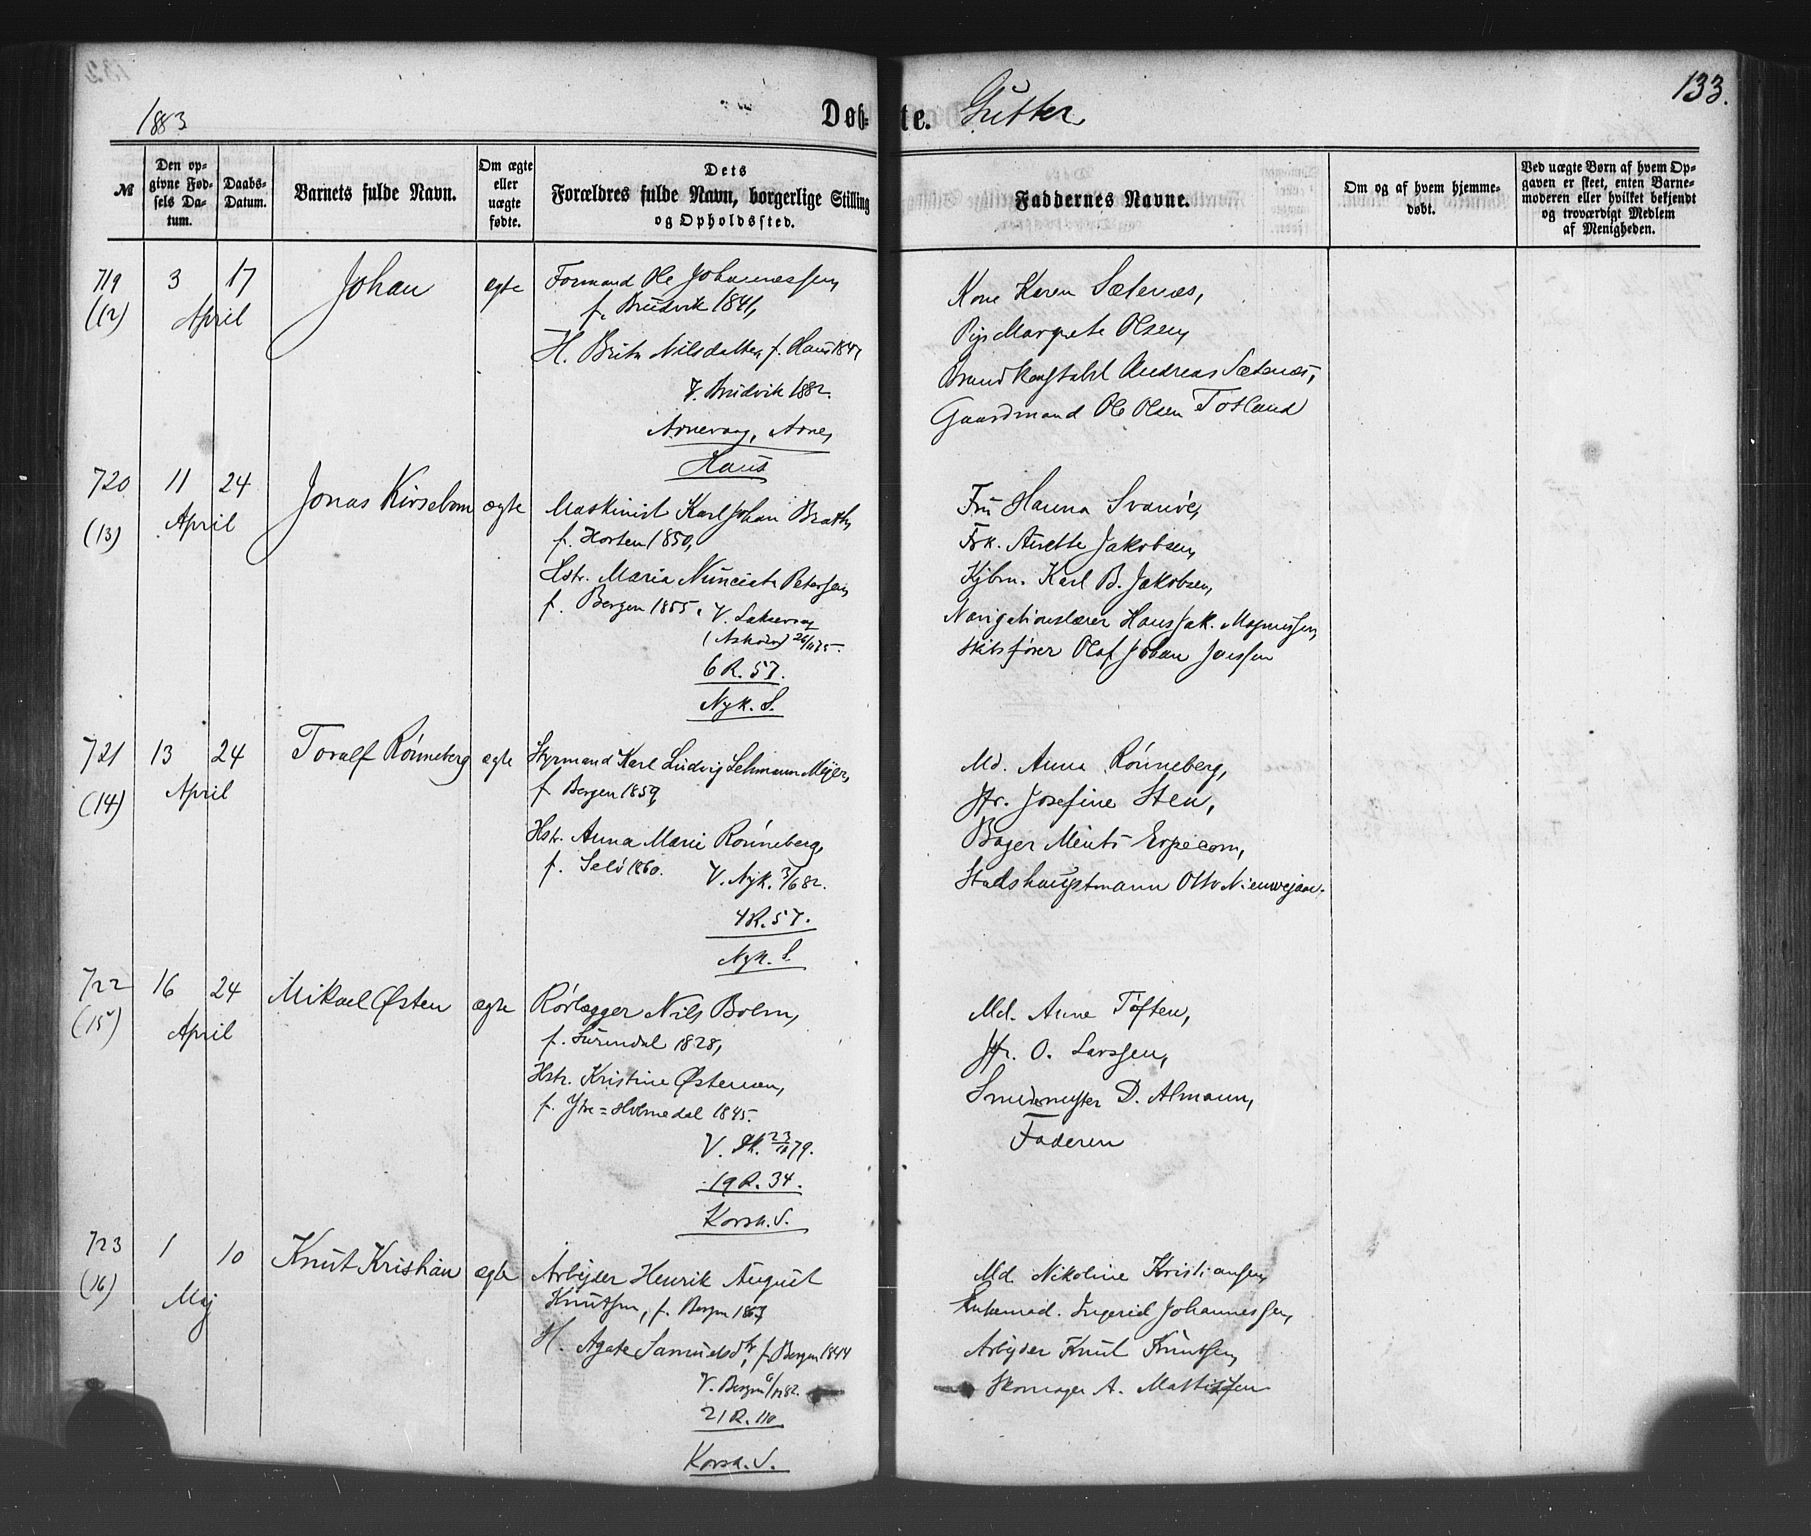 133.
1883
Døb= te. Gutter
№
Den opgivne Fødsels Datum.
Daabs-Datum.
Barnets fulde Navn.
Om ægte eller uægte fødte.
Dets Forældres fulde Navn, borgerlige Stilling og Opholdssted.
Faddernes Navne.
Om og af hvem hjemmedøbt.
Ved uægte Børn af hvem Opgaven er skeet, enten Barnemoderen eller hvilket bekjendt og troværdigt Medlem af Menigheden.
719 3 17 Johan ægte
(12) April
Formand Ole Johannessen,
f. Bruvik 1841,
H. Brita Nilsdatter, f. Haus 184
V. Bruvik 1882.
Arnevaag, Arne,
Haus
Kone Karen Sætenæs,
Pige Margrete Olsen,
Brandkonstabel Andreas Sætenæs,
Gaardmand Ole Olsen Totland
720 11 24 Jonas Kirsebom ægte
(13) April
Maskinist Karl Johan Brath,
f. Horten 1850,
Hstr. Maria Nunciata Petersen,
f. Bergen 1855. V. Laksevaag
(Askøen)
6 R. 57.
Nyk. S.
Fru Hanna Svanøe,
Frk. Anette Jakobsen,
Kjbm. Karl B. Jakobsen,
Navigationslærer Hans Jak. Magnussen,
Skibsfører Olaf Johan Janssen
721 13 24 Toralf Rónneberg ægte
(14) April
Styrmand Karl Ludvig Lehmann Meyer,
f. Bergen 1859,
Hstr. Anna Marie Rónneberg,
f. Selö 1860. V. Nyk. 3/6 82.
4 R. 57.
Nyk. S.
Md. Anna Rónneberg,
Jfr. Josefine Sten,
Bager Ments Erpecom,
Stadshauptmann Otto Nieuwejaar.
722 16 24 Mikael Østen ægte
(15) April
Rørlægger Nils Bolm,
f. Surendal 1828,
Hstr. Kristine Østensen,
f. Ytre=Holmedal 1845.
V. 23/10 79.
19 R. 34.
Korsk. S.
Md. Anne Tøften,
Jfr. O. Larssen,
Smedmester D. Almann,
Faderen
723 1 10 Knut Kristian ægte
(16) Maj
Arbejder Henrik August
Knutsen, f. Bergen
H. Agate Samuelsdtr, f. Bergen 1844
V. Bergen 82.
21 R. 110
Korsk. S.
Md. Nikoline Kristiansen,
Enkemad. Ingerid Johannessen,
Arbejder Knut Knutsen,
Skomager A. Mattissen